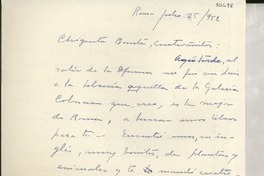 50698
Roma julio 25/952
Chiquita Bonita, Cuatroñitos:
Ayer tarde, al
salir de la Oficina me fui con Doris
a la librería aquella de la Galería
Colonna que, creo, es la mejor
de Roma, a buscar unos libros
para ti — Encontré unos, en in-
glés, muy bonitos, de plantas y
animales y te mando cuatro